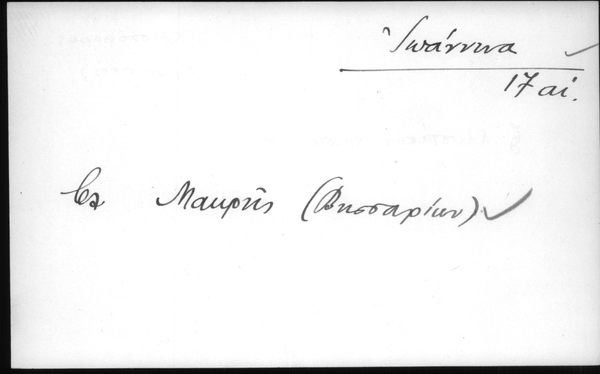 Ἰωάννινα
17 αἰ.
Μακρῆς (Βησσαρίων)